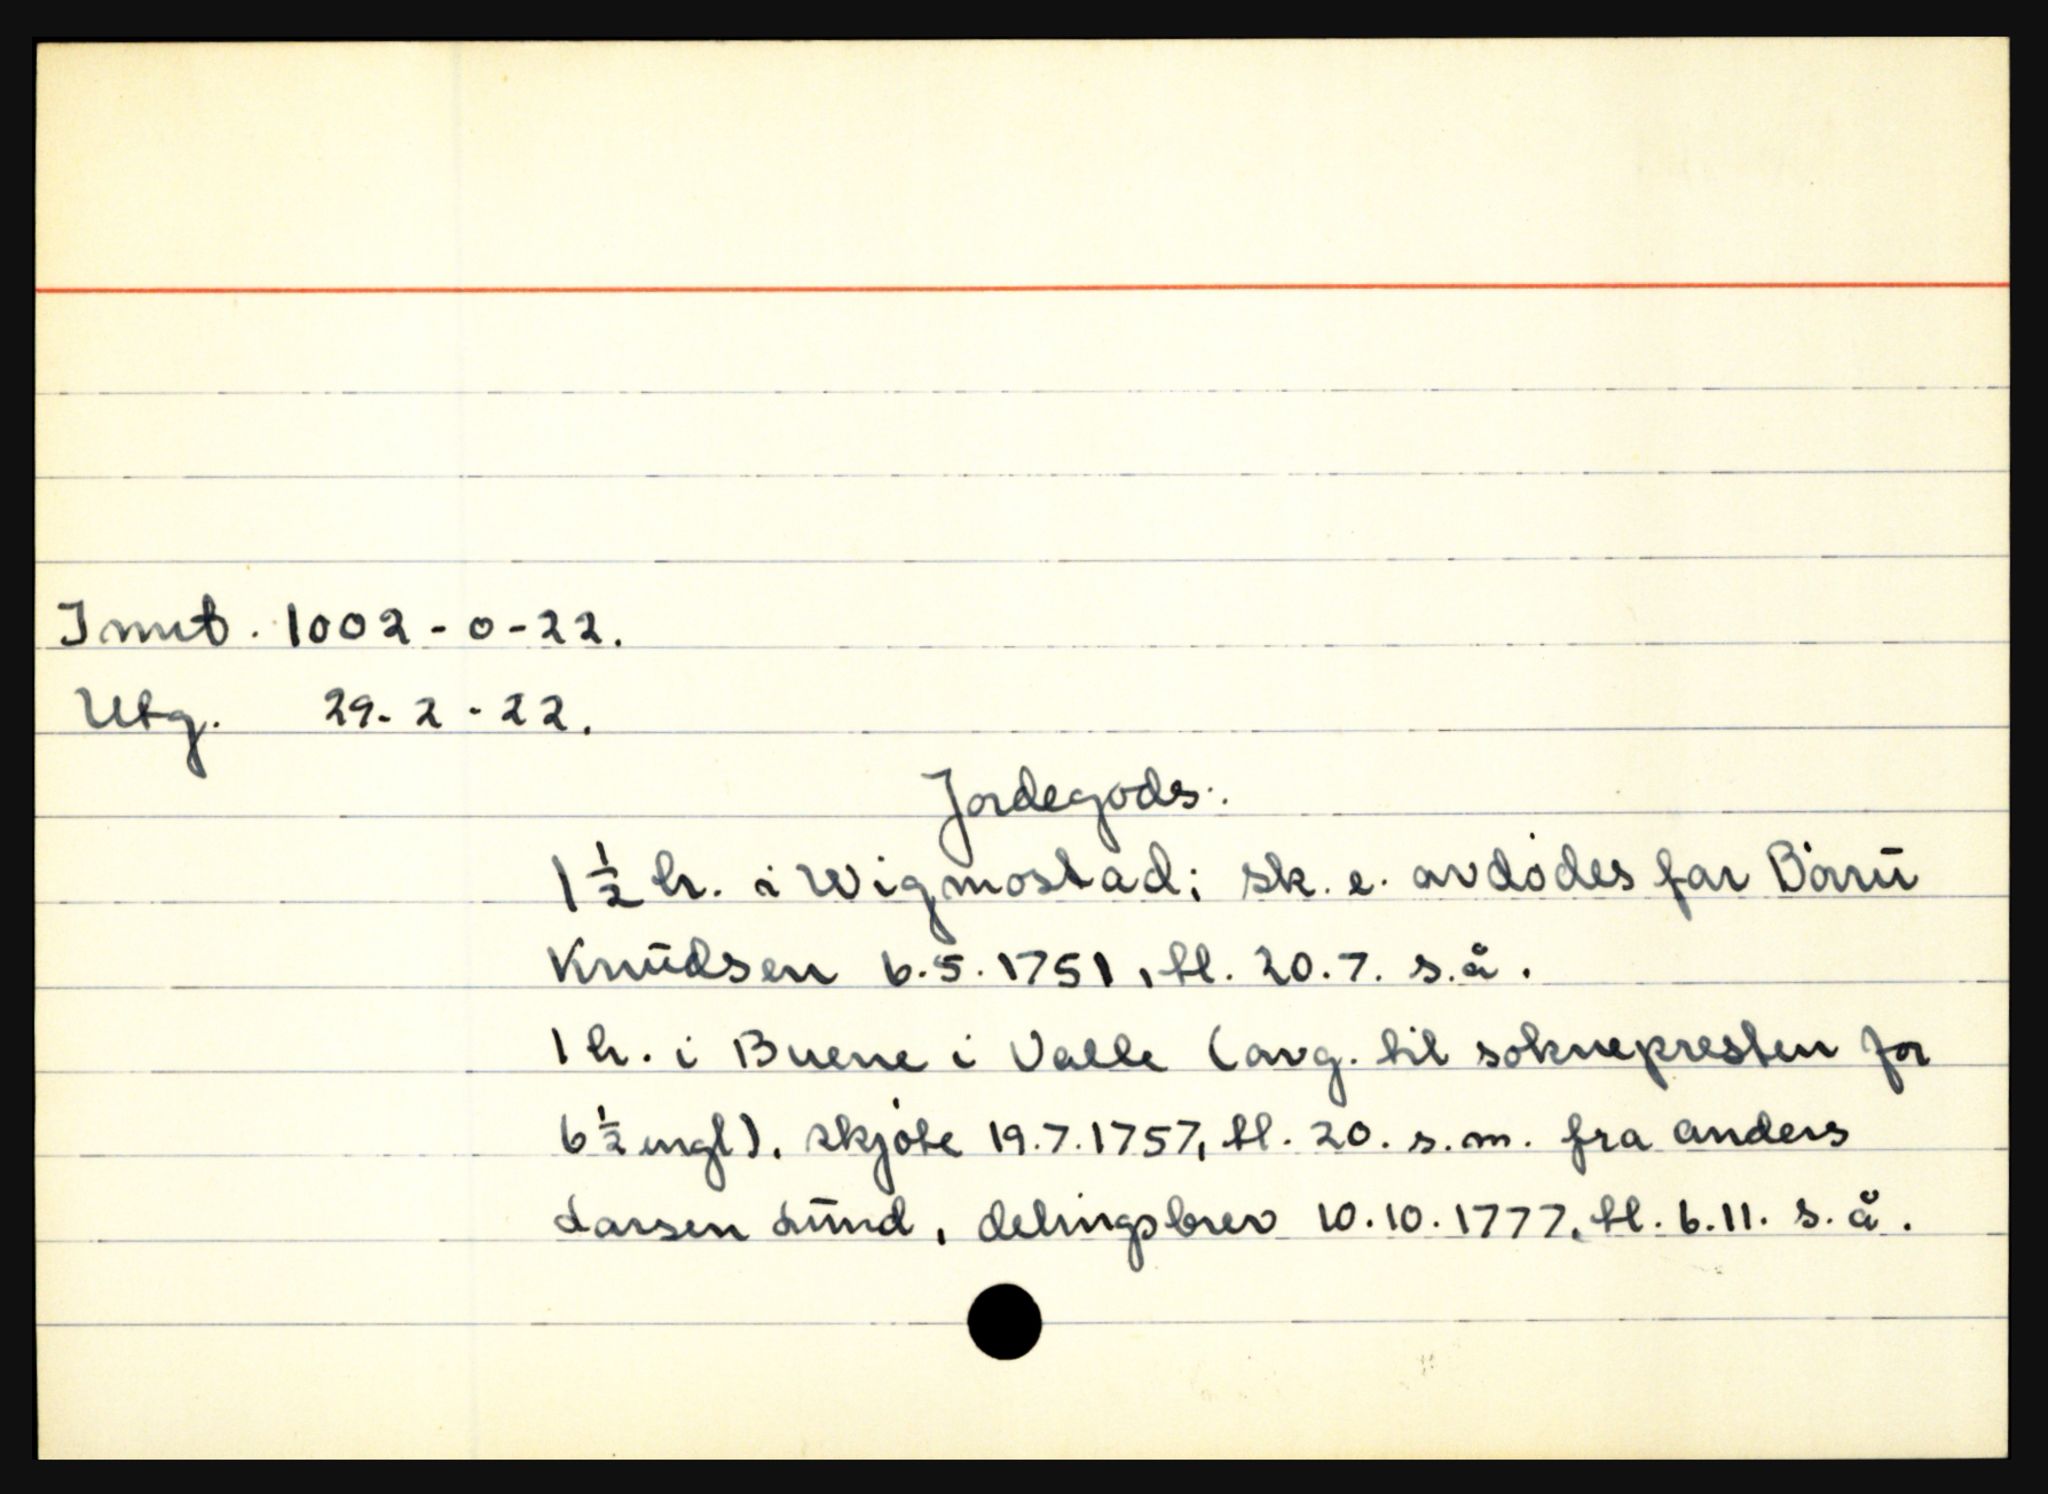 Innt. 1002-0-22.
Utg. 29-2-22.
Jordegods:
1 1/2 hr. i Wigmostad; sk. e. avdødes far Børru
Knudsen 6.5.1751, tl. 20.7. s.å.
1 hr. i Buene i Valle (avg. til soknepresten for
6 1/2 engl). Skjøte 19.7.1757, tl. 20. s.m. fra Anders
Larsen Lund, delingsbrev 10.10.1777, tl. 6.11. s.å.